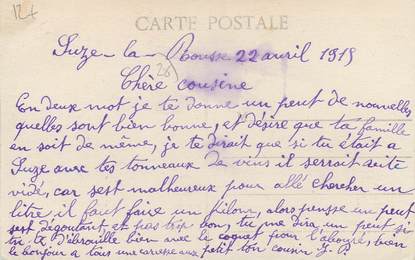 12+
CARTE POSTALE
Suze-la-Rousse 22 avril 1919
(26)
Chère cousine
En deux mot je te donne un peut de nouvelles
quelles sont bien bonne, et désire que ta famille
en soit de même, je te dirait que si tu était a
Suze avec tes tonneaux de vins il serrait vite
vidé, car sest malheureux pour allé chercher un
litre il faut faire un pilom, alors pensse un peut
sest dégoutant et pas trop bon, tu me dira un peut si
tu te débrouille bien avec le coquet pour l'abouré, bien
le bonjour a tous une caresse aux petit ton cousin J. P